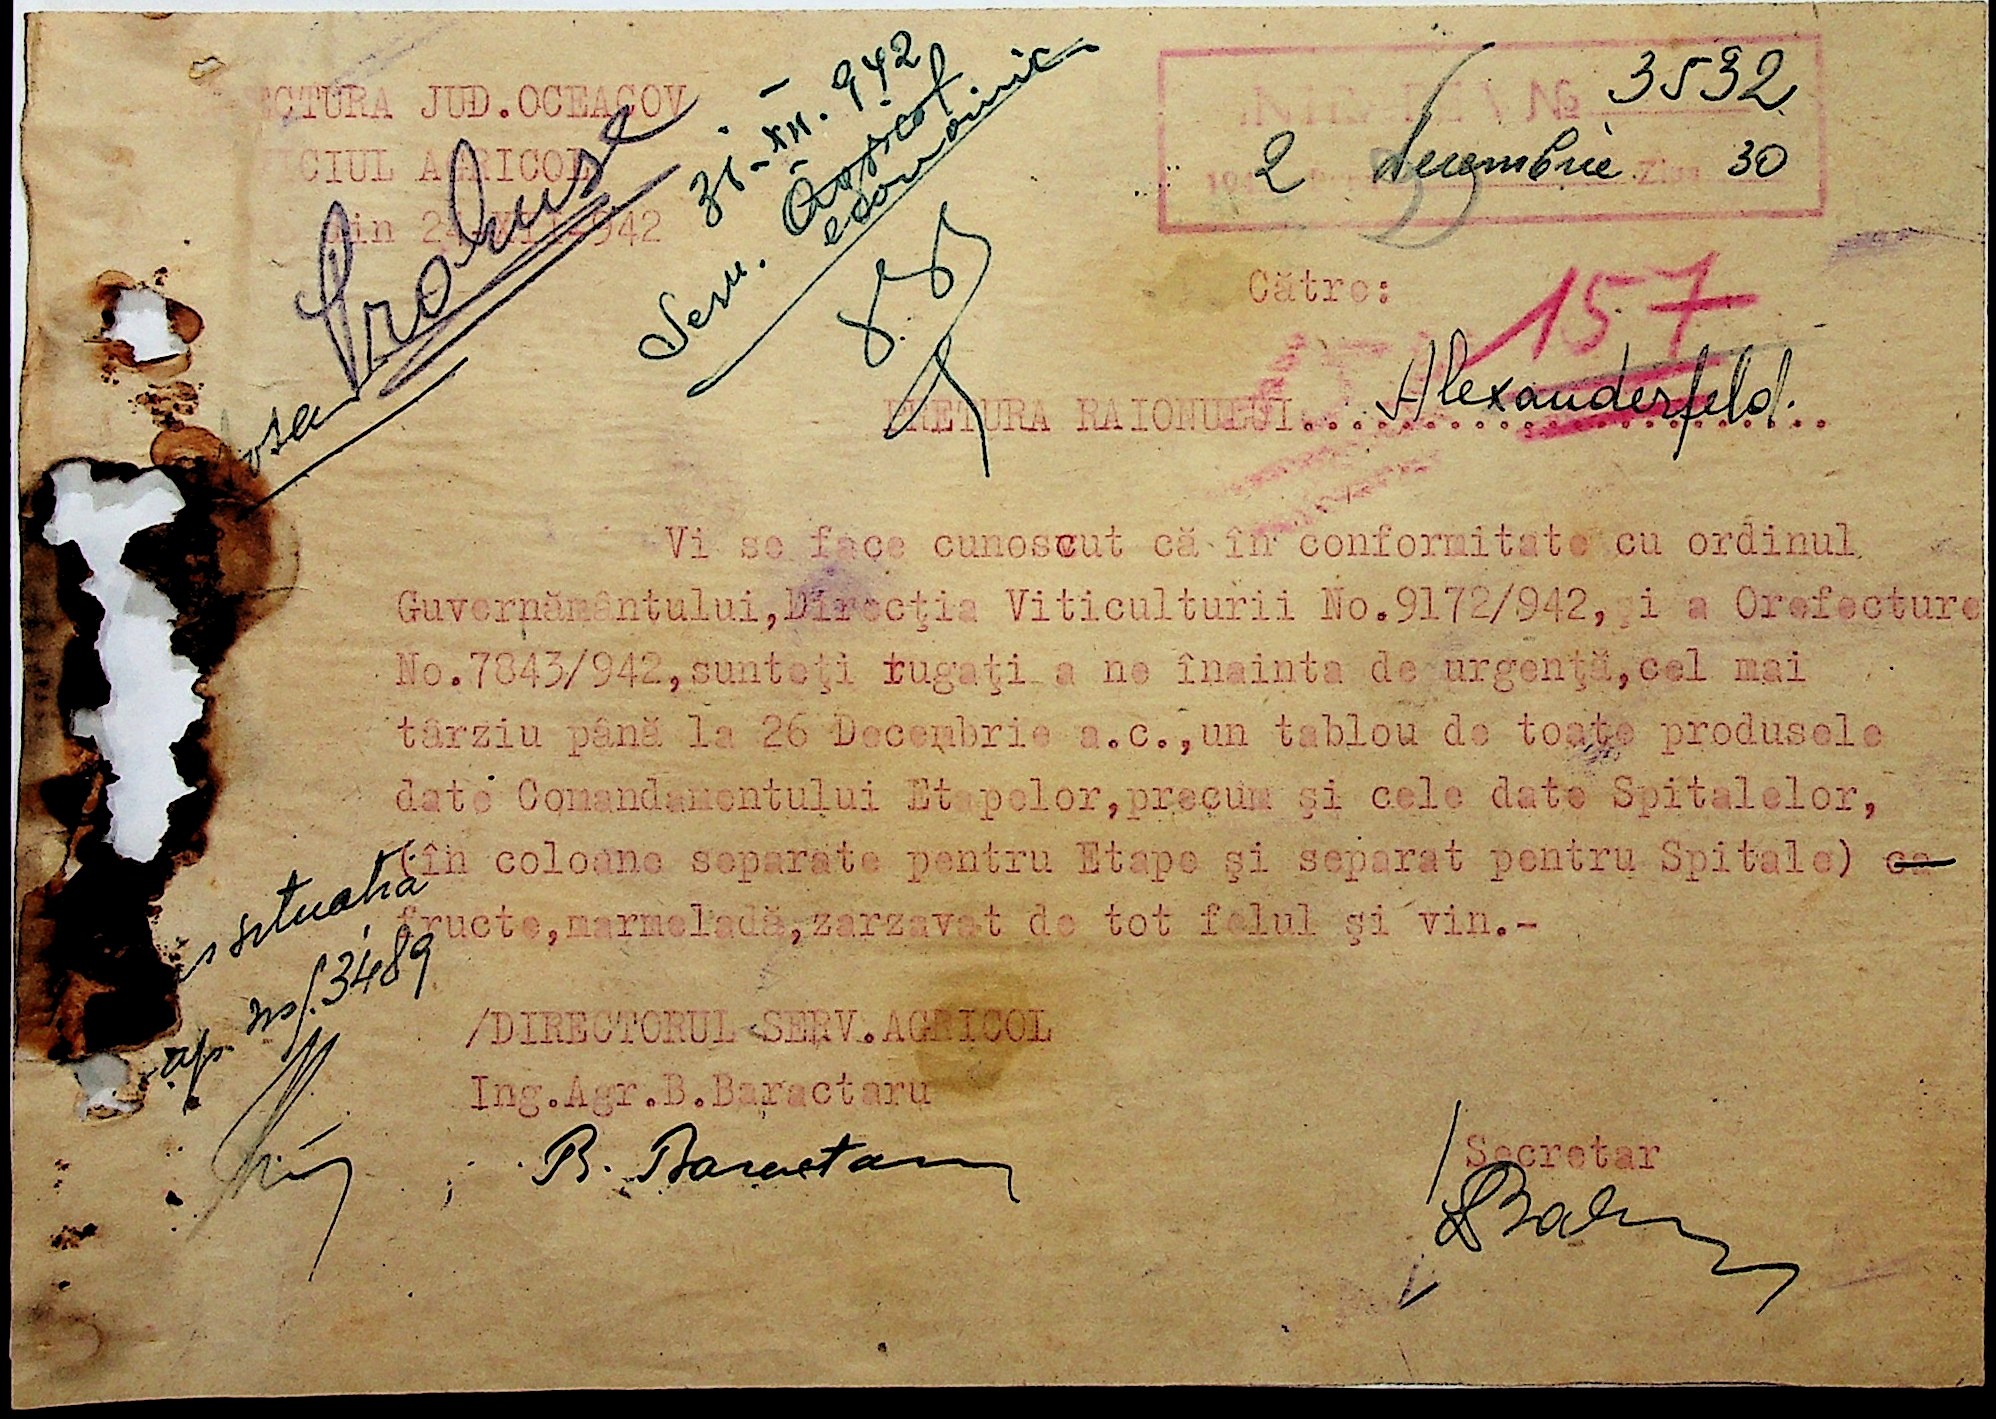 CTURA JUD.OCEACOV
CIUL AGRICOL
din 24.XII.1942
Produse
31-XII.942
Serv. Agricol
economic
No 3532
194 2 Decembrie Ziua 30
Către:
157
PRETURA RAIONULUI.... Alexanderfeld.
Vi se face cunoscut că în conformitate cu ordinul
Guvernământului,Direcţia Viticulturii No.9172/942,şi a Orefecture
No.7843/942,sunteţi rugaţi a ne înainta de urgenţă,cel mai
târziu până la 26 Decembrie a.c.,un tablou de toate produsele
date Comandamentului Etapelor,precum şi cele date Spitalelor,
(în coloane separate pentru Etape şi separat pentru Spitale) ca
fructe,marmeladă,zarzavat de tot felul şi vin.-
situatia
3489
/DIRECTORUL SERV.AGRICOL
Ing.Agr.B.Baractaru
B. Baractaru
Secretar